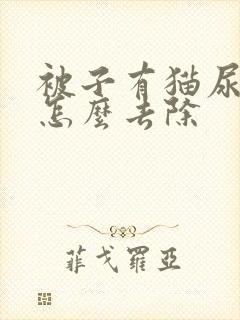 被子有猫尿
怎麼去除
菲戈羅亞